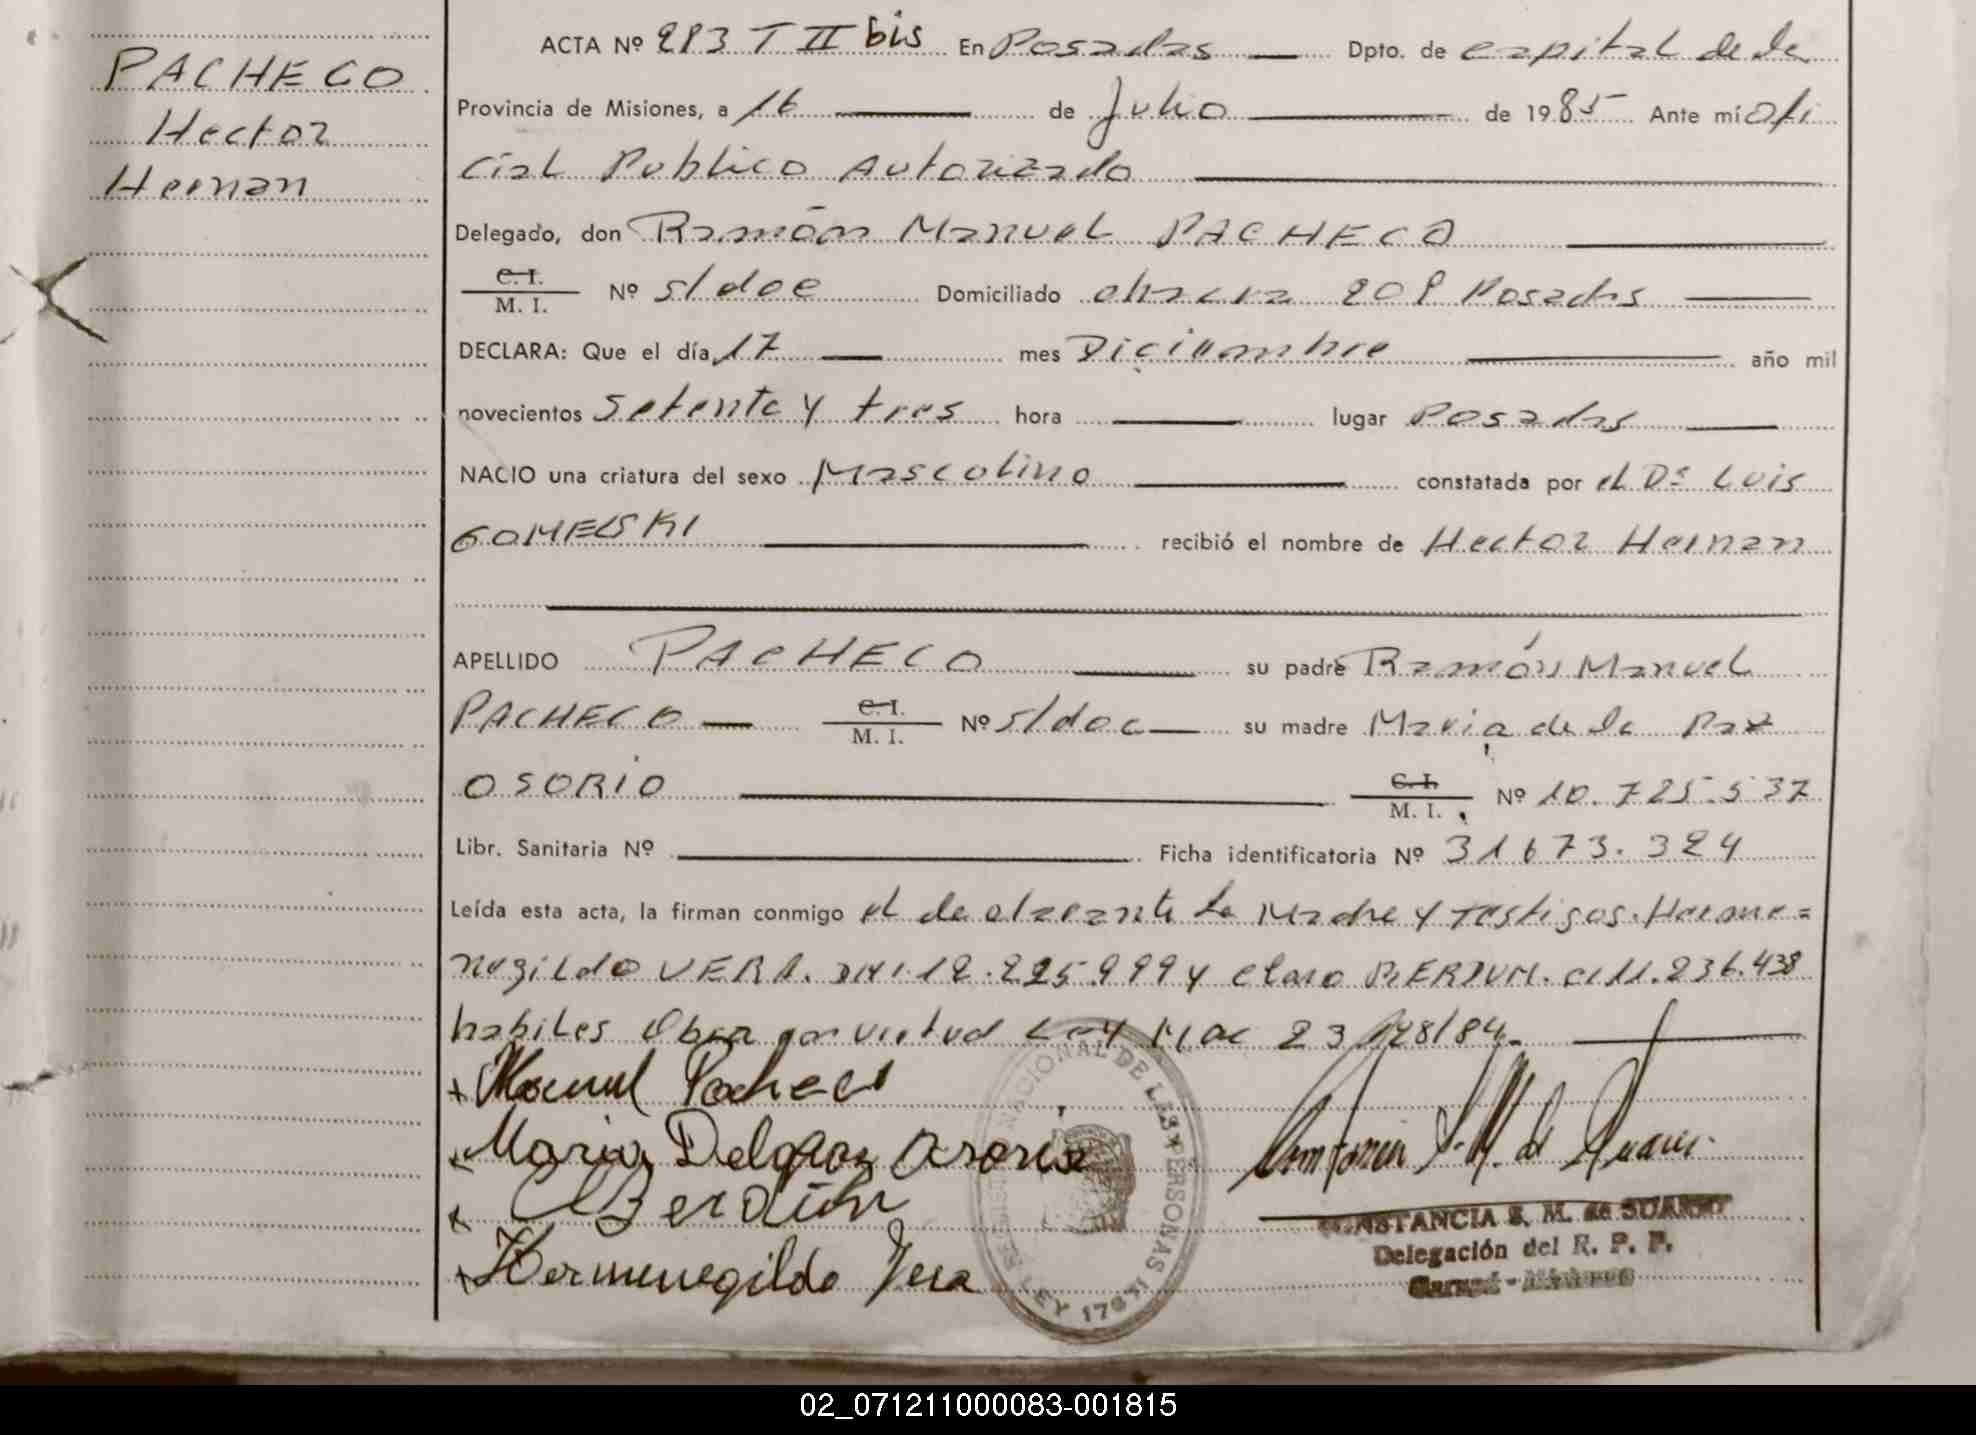 PACHECO
Hector
Hernan
ACTA Nº 283 T II bis En Posadas Dpto. de capital de la
Provincia de Misiones, a 16 de Julio de 1985 Ante mí ofi
cial Publico Autorizado
Delegado, don Ramón Manuel PACHECO
C. I.
M. I. Nº s/doc Domiciliado 208 Posadas
DECLARA: Que el día 17 mes Diciembre año mil
novecientos setenta y tres hora lugar Posadas
NACIO una criatura del sexo Mascolino constatada por el Dr Luis
GOMELSKI recibió el nombre de Hector Hernan
APELLIDO PACHECO su padre Ramón Manuel
PACHECO C. I. M. I. Nº s/doc su madre Maria de la Paz
OSORIO C. I. M. I. Nº 10.725.537
Libr. Sanitaria Nº Ficha identificatoria Nº 31673.324
Leída esta acta, la firman conmigo el declarante La Madre y Testigos. Herme=
negildo VERA. DNI 12.225.999 y Claro CI 11.236.438
habiles Obra por virtud Ley 23128/84
Manuel Pacheco
Maria Delapaz Osorio
Berdún
Hermenegildo Vera
REGISTRO NACIONAL DE LAS PERSONAS
LEY
CONSTANCIA S. M. de SUAREZ
Delegación del R. P. P.
Garupá - Misiones
02_071211000083-001815